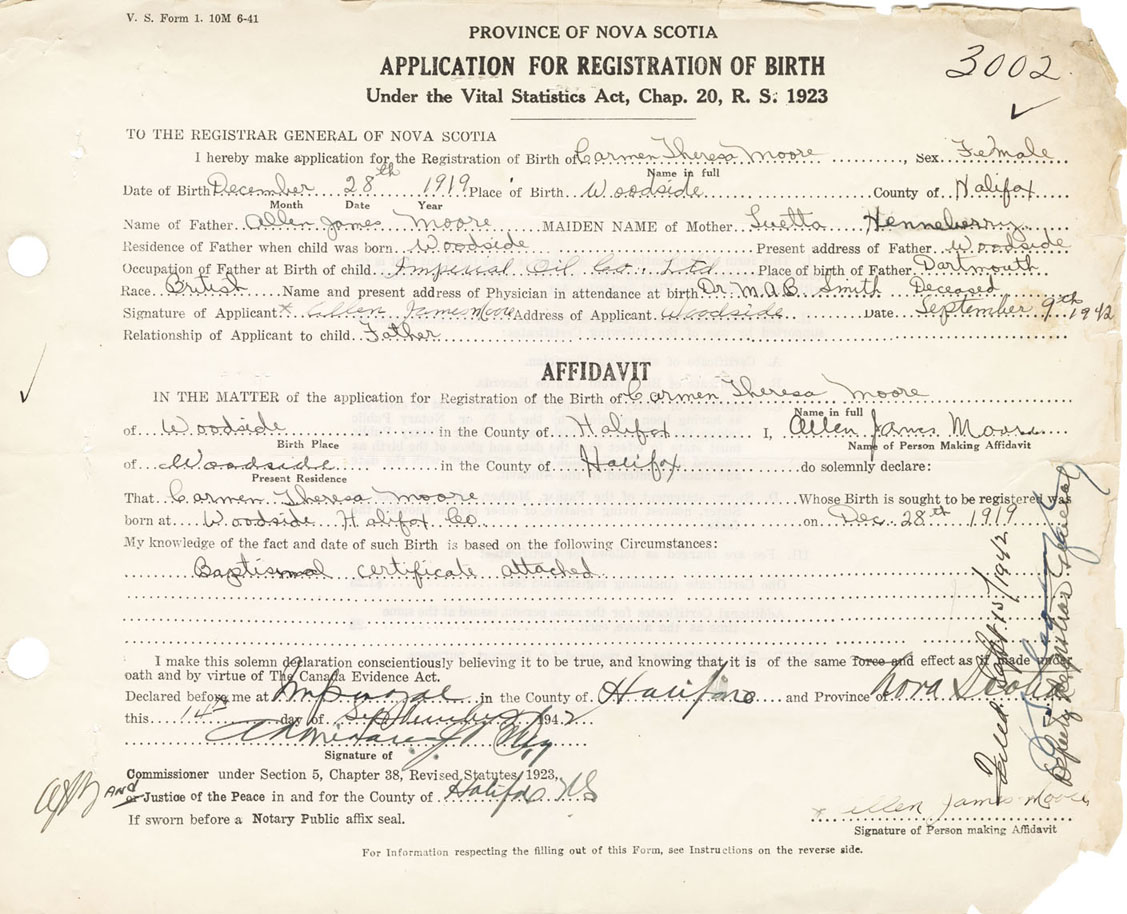 V. S. Form 1. 10M 6-41
PROVINCE OF NOVA SCOTIA
3002
APPLICATION FOR REGISTRATION OF BIRTH
Under the Vital Statistics Act, Chap. 20, R. S. 1923
TO THE REGISTRAR GENERAL OF NOVA SCOTIA
I hereby make application for the Registration of Birth of Carmen Theresa Moore, Sex Female
Name in full
Date of Birth December 28th 1919 Place of Birth Woodside County of Halifax
Month Date Year
Name of Father Allen James Moore MAIDEN NAME of Mother Luetta Henneberry
Residence of Father when child was born Woodside Present address of Father Woodside
Occupation of Father at Birth of child Imperial Oil Co. Ltd Place of birth of Father Dartmouth
Race British Name and present address of Physician in attendance at birth Dr. M.A.B. Smith Deceased
Signature of Applicant x Allen James Moore Address of Applicant Woodside Date September 9th 1942
Relationship of Applicant to child Father
AFFIDAVIT
IN THE MATTER of the application for Registration of the Birth of Carmen Theresa Moore
Name in full
of Woodside in the County of Halifax I, Allen James Moore
Birth Place Name of Person Making Affidavit
of Woodside in the County of Halifax do solemnly declare:
Present Residence
That Carmen Theresa Moore Whose Birth is sought to be registered was
born at Woodside Halifax Co on Dec 28th 1919
My knowledge of the fact and date of such Birth is based on the following Circumstances:
Baptismal certificate attached
I make this solemn declaration conscientiously believing it to be true, and knowing that it is of the same force and effect as if made under
oath and by virtue of The Canada Evidence Act.
Declared before me at in the County of Halifax and Province of Nova Scotia
this 14th day of September 1942
Signature of
Commissioner under Section 5, Chapter 38, Revised Statutes 1923,
AND
or Justice of the Peace in and for the County of Halifax NS
If sworn before a Notary Public affix seal.
x Allen James Moore
Signature of Person making Affidavit
For Information respecting the filling out of this Form, see Instructions on the reverse side.
Filed Sept. 15/1942
Deputy Registrar General